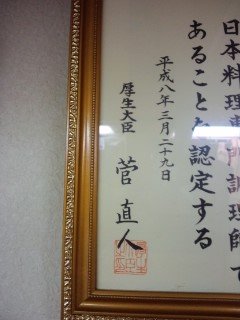 日本料理専門調理師で
あることを認定する
平成八年三月二十九日
厚生大臣
菅直人